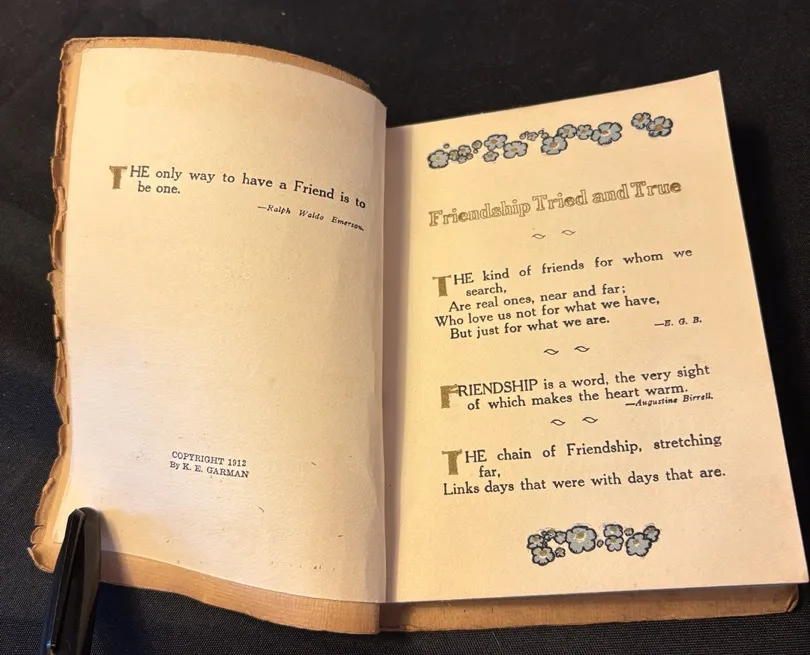 THE only way to have a Friend is to
be one.
—Ralph Waldo Emerson.
COPYRIGHT 1912
By K. E. GARMAN
Friendship Tried and True
THE kind of friends for whom we
search,
Are real ones, near and far;
Who love us not for what we have,
But just for what we are.
—E. G. B.
FRIENDSHIP is a word, the very sight
of which makes the heart warm.
—Augustine Birrell.
THE chain of Friendship, stretching
far,
Links days that were with days that are.